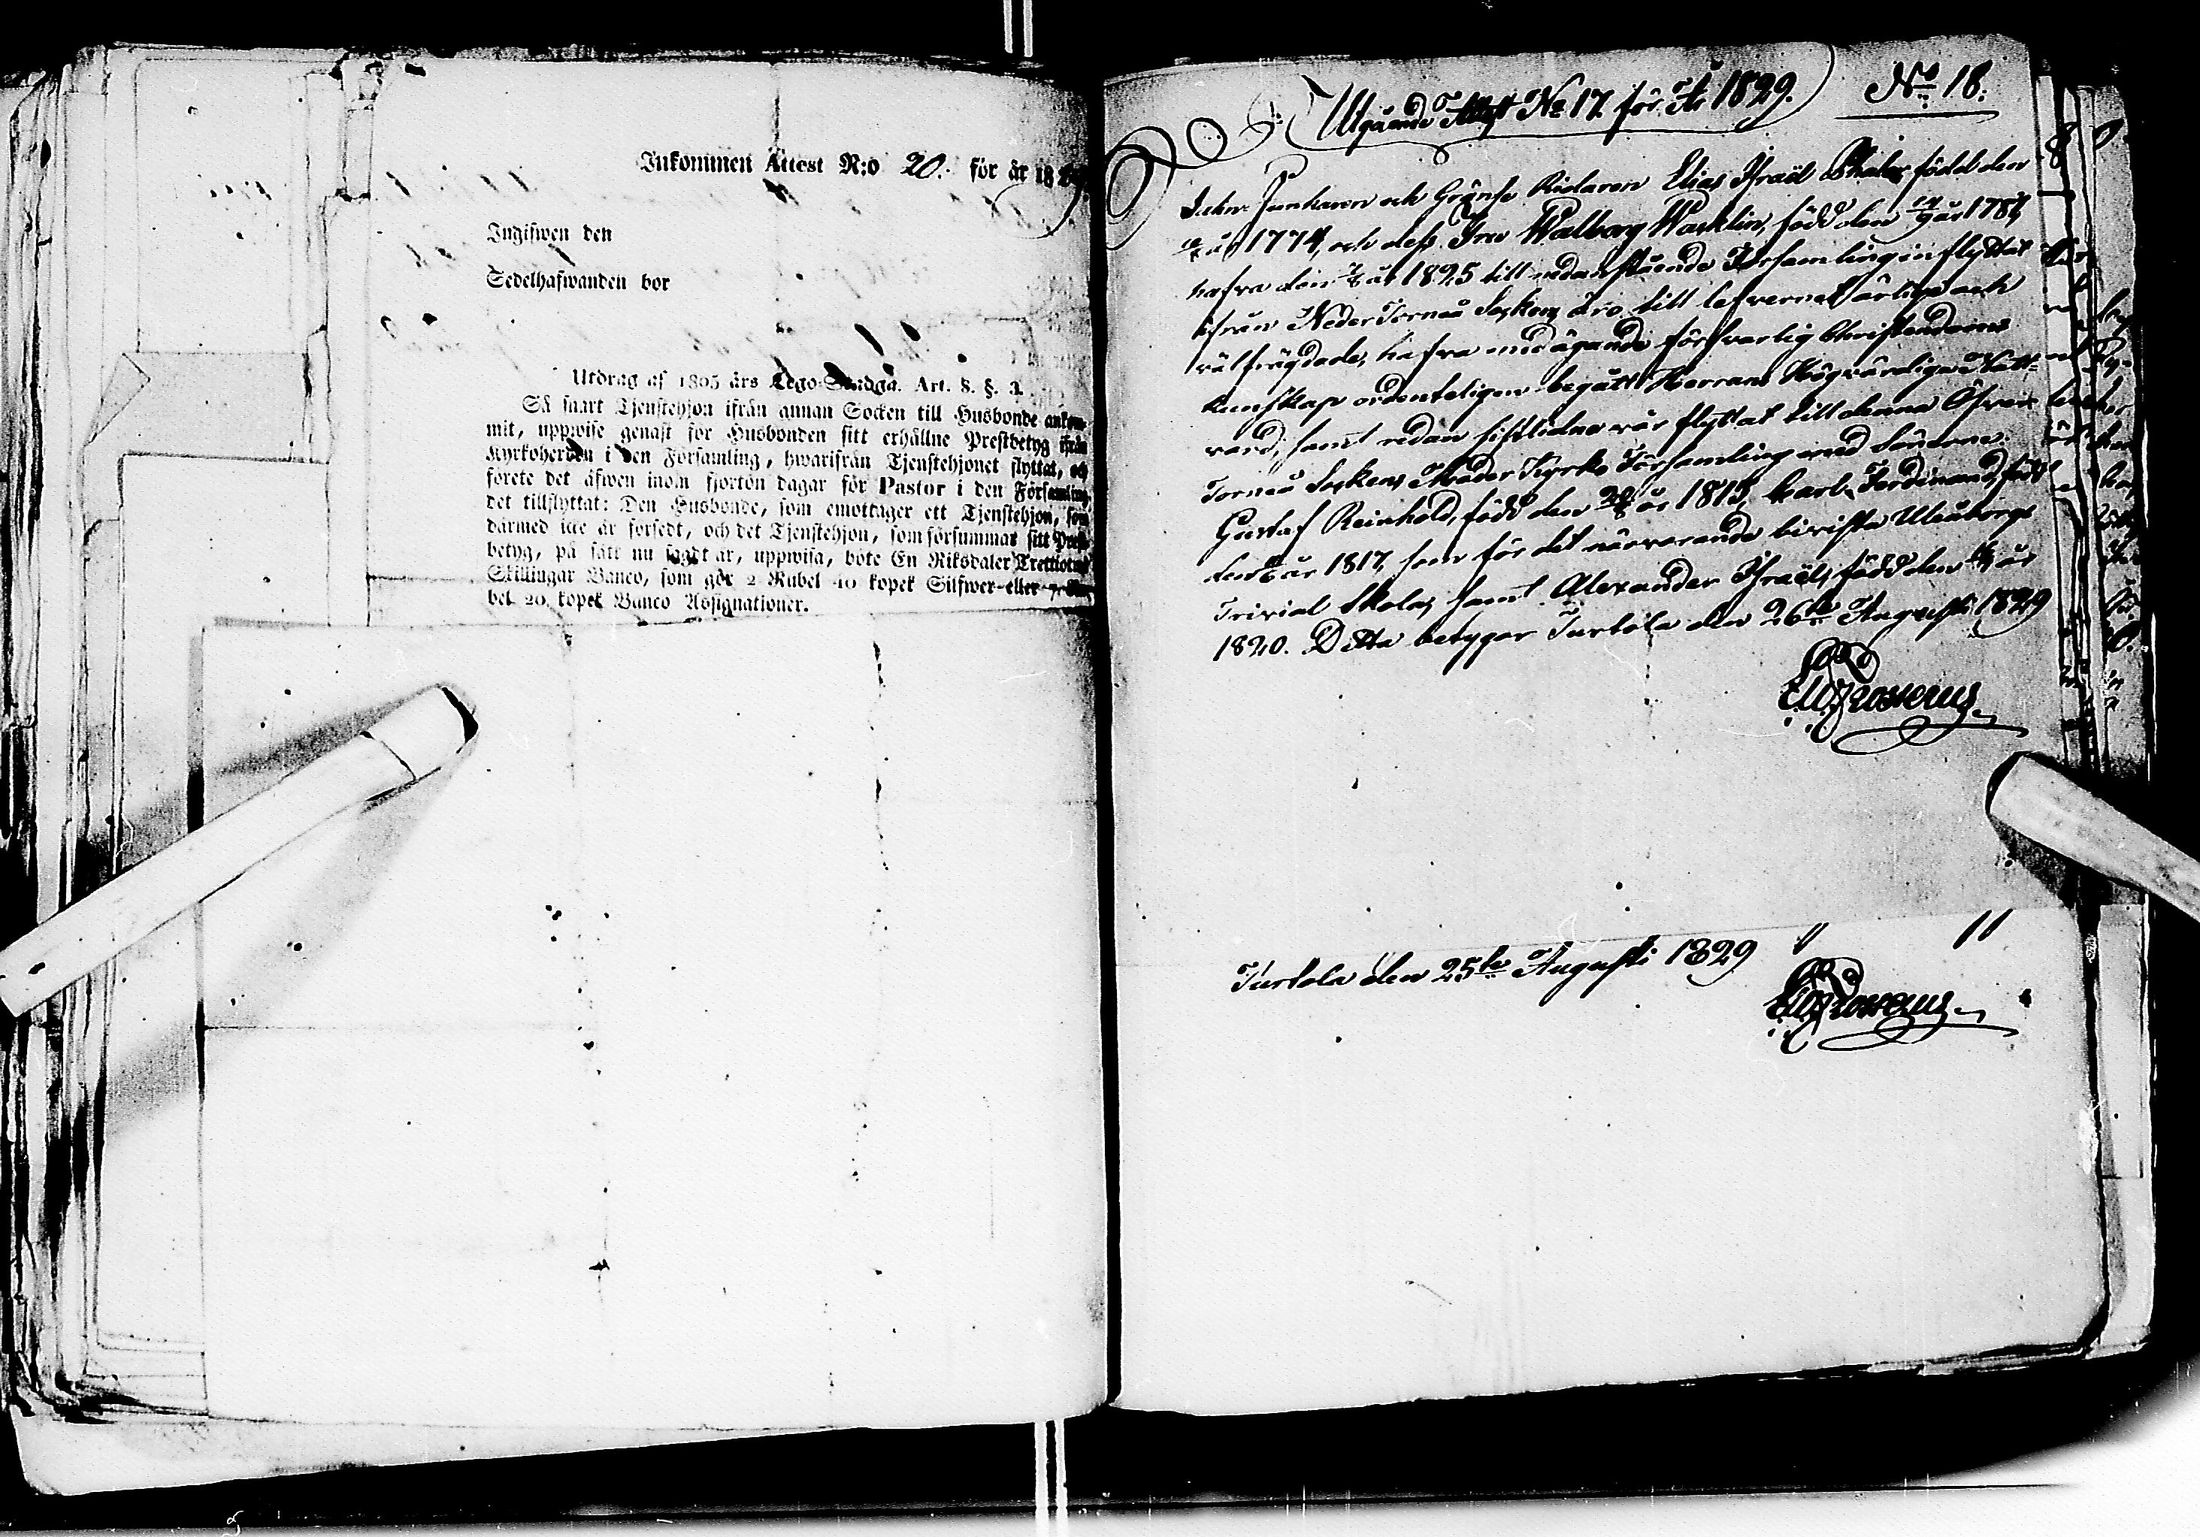 Inkommen Attest N:o 20. för år 18
Ingifwen den
Sedelhafwanden bor
Utdrag af 1805 års Lego-Stadga. Art. 8. §. 3.
Så snart Tjenstehjon ifrån annan Socken till Husbonde ankom-
mit, uppwise genast för Husbonden sitt erhållne Prestbetyg ifrån
Kyrkoherden i den Församling, hwarifrån Tjenstehjonet flyttat, och
förete det äfwen inom fjorton dagar för Pastor i den Församling,
det tillflyttat: Den Husbonde, som emottager ett Tjenstehjon, som
därmed icke är försedt, och det Tjenstehjon, som försummar sitt Prest-
betyg, på sätt nu sagdt är, uppwisa, böte En Riksdaler Trettiotwå
Skillingar Banco, som gör 2 Rubel 40 kopek Silfwer- eller 7 Ru-
bel 20 kopek Banco Assignationer.
Utgående Attest No 17 för År 1829. No 18.
och Gräns Ridaren Elias Israël födde den
år 1774, och dess Fru Walborg Wacklin, född den år
hafva den år 1825 till nedanstående Församling inflyttat
ifrån Neder Torneå Socken, äro till lefvernet ärlige och
välfrägdade, hafva med ägande försvarlig Christendoms
kunskap ordenteligen begått Herrans Högvärdiga Natt-
vard, samt redan sistlidne vår flyttat till denna Öfver
Torneå Sockens Moder Kyrko Församling med Sönerne:
Gustaf Reinhold, född den år 1815, Carl Ferdinand, född
den år 1817, som för det närvarande bivista Uleåborgs
Trivial Skola, samt Alexander Israël, född den år
1820. Detta betygar Turtola den 26te Augusti 1829
Turtola den 25te Augusti 1829